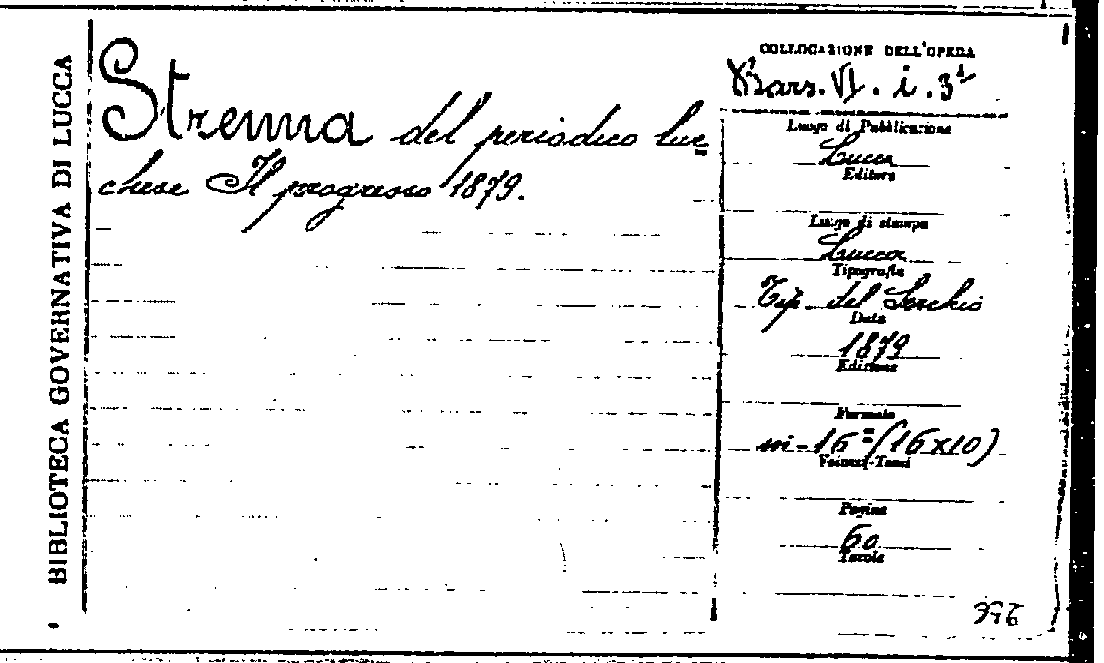 BIBLIOTECA GOVERNATIVA DI LUCCA
Strenna del periodico luc=
chese Il progresso 1879.
COLLOCAZIONE DELL'OPERA
Bars. VI. i. 3¹
Luogo di Pubblicazione
Lucca
Editore
Luogo di stampa
Lucca
Tipografia
Tip. del Serchio
Data
1879
Edizione
Formato
in-16º (16x10)
Volumi-Tomi
Pagine
60
Tavole
396